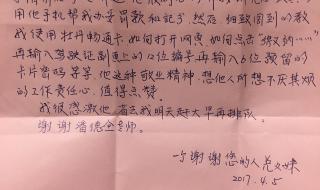 用他手机帮我办妥罚款和记分,然后细致周到的教
我使用牡丹畅通卡,如何打开网页,如何点击“缴纳……”
再输入驾驶证副页上的12位编号再输入6位预留的
卡片密码等等,他这种敬业精神,想他人所想不厌其烦
的工作责任心,值得点赞。
我很感激他,省去我明天赶大早再排队。
谢谢潘德全老师。
与谢谢您的人
2017.4.5